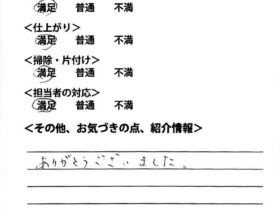 満足 普通 不満
<仕上がり>
満足 普通 不満
<掃除・片付け>
満足 普通 不満
<担当者の対応>
満足 普通 不満
<その他、お気づきの点、紹介情報>
ありがとうございました。